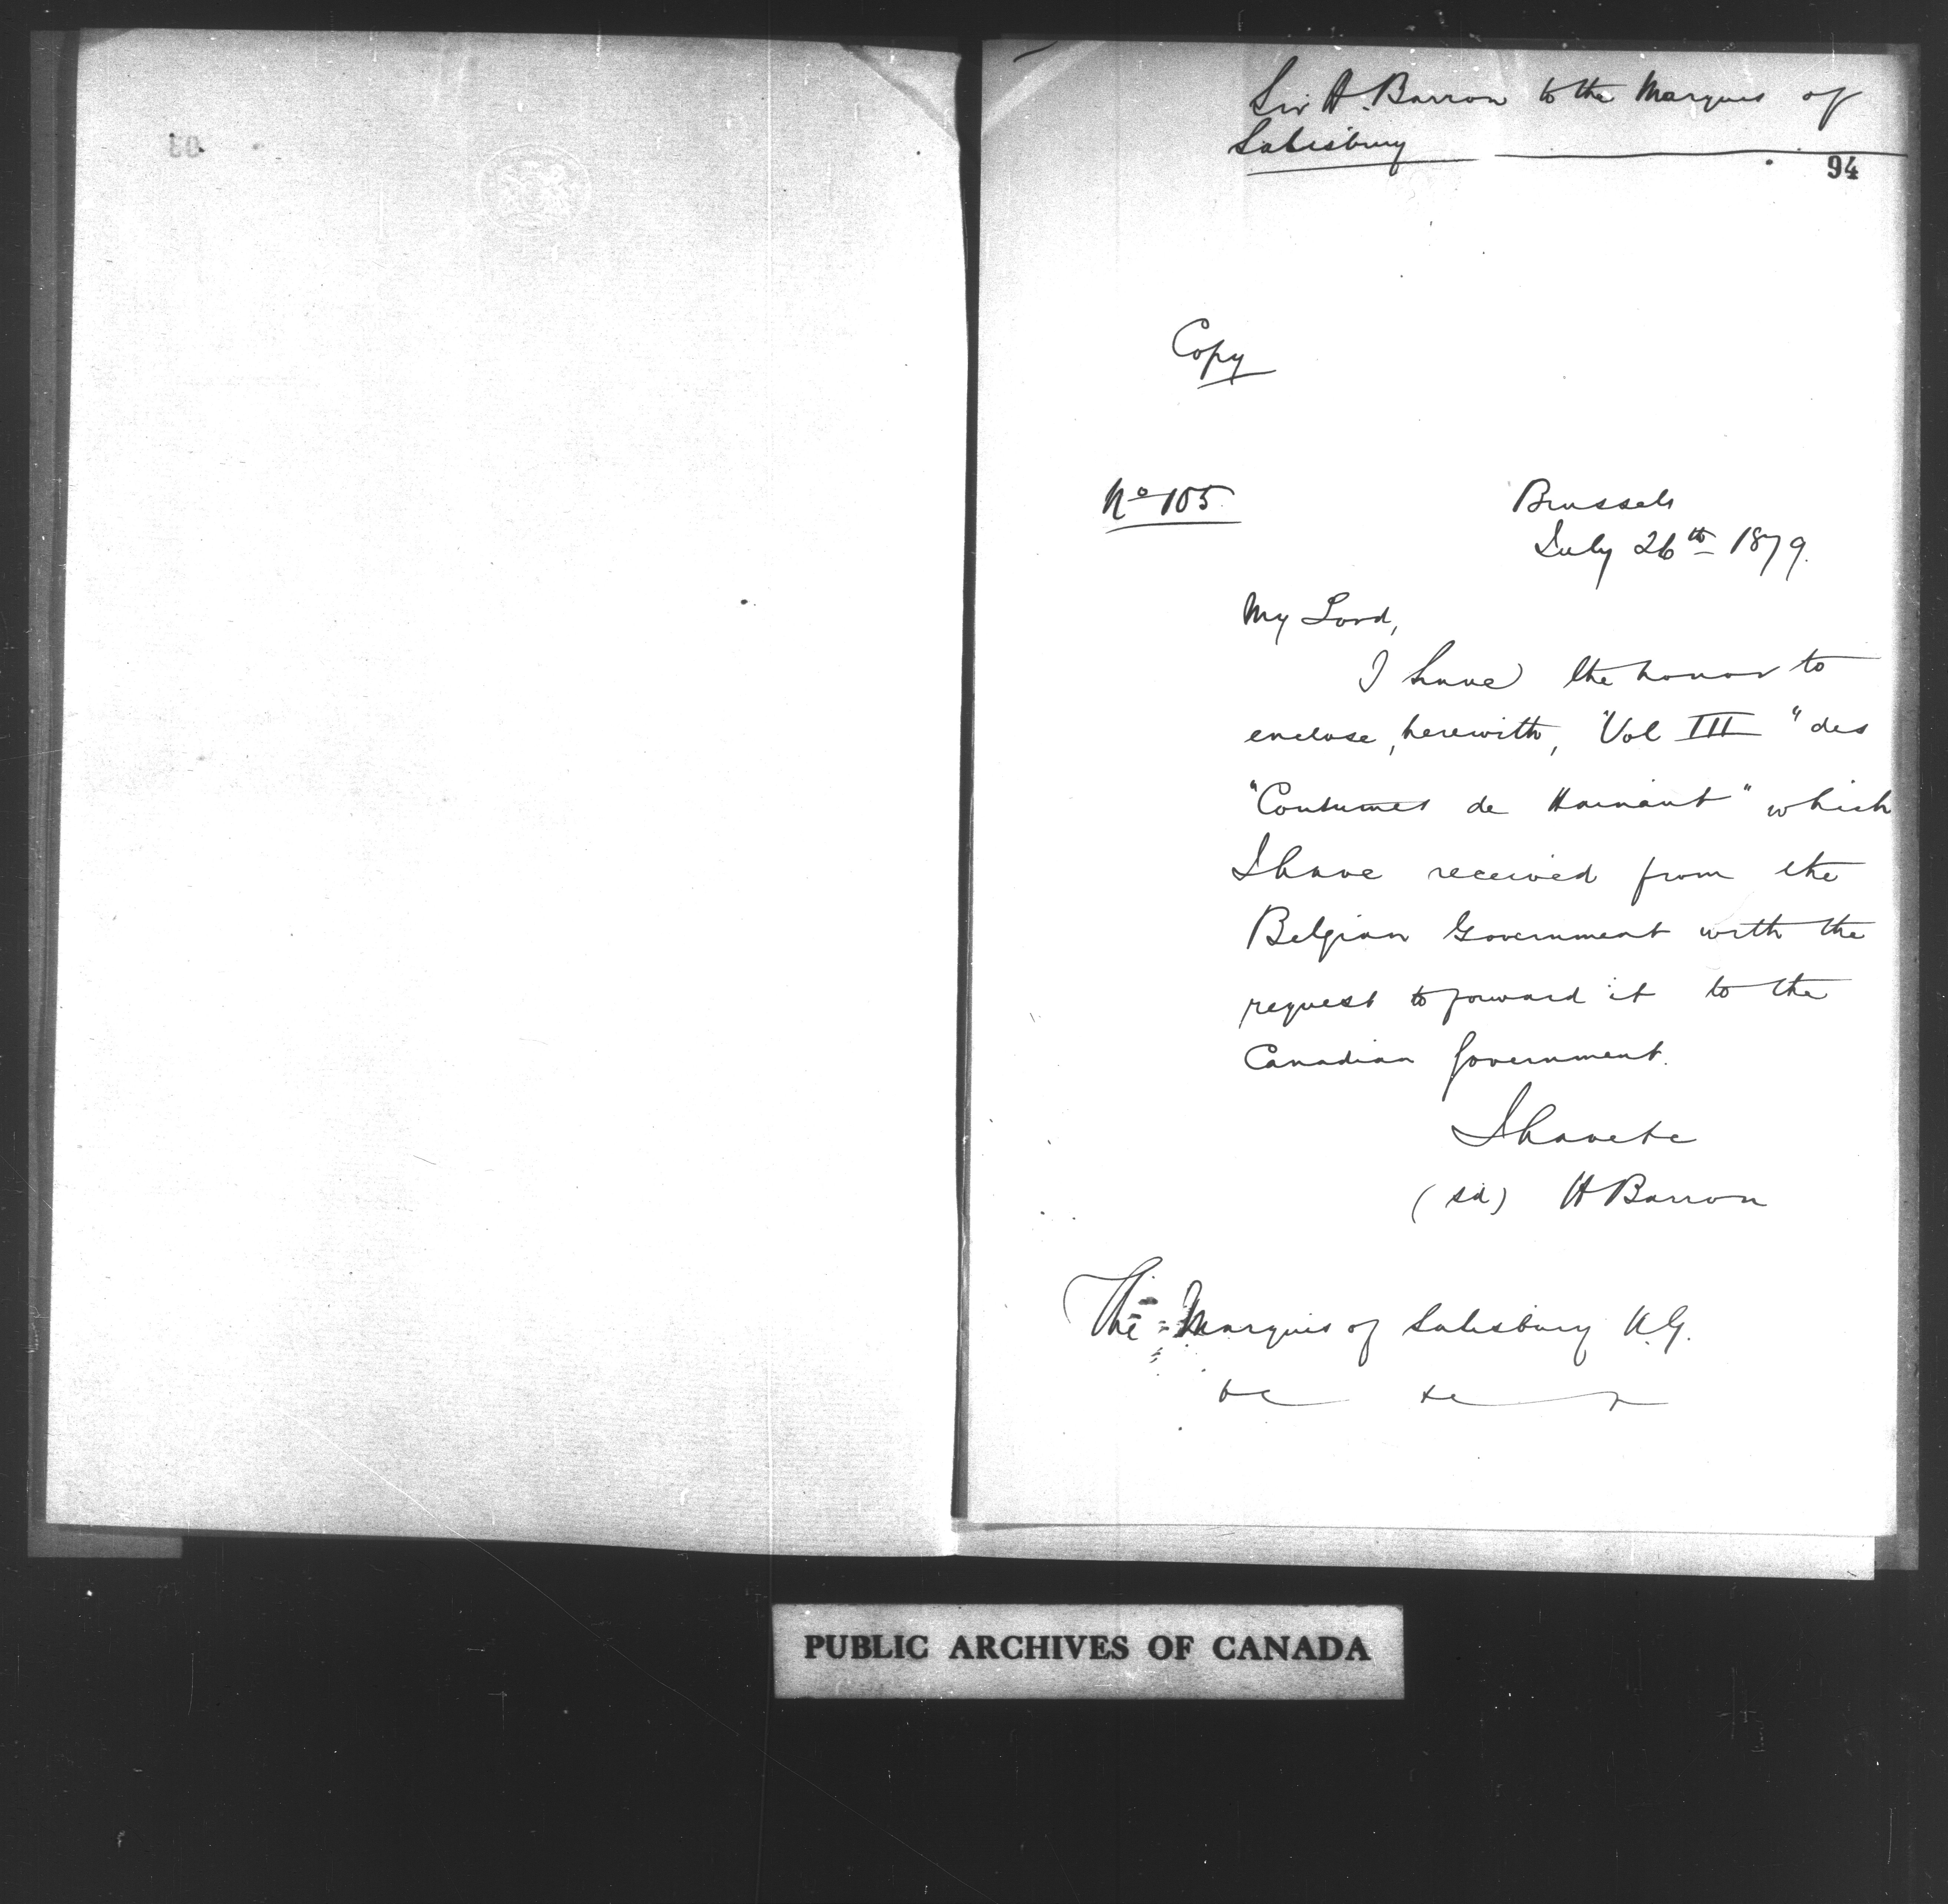 Sir H. Barron to the Marquis of
Salisbury
94
Copy
No 105.
Brussels
July 26th 1879.
My Lord,
I have the honor to
enclose, herewith, "Vol III "des
"Coutumes de Hainaut" which
I have received from the
Belgian Government with the
request to forward it to the
Canadian Government.
I have &c
(sd) H Barron
The Marquis of Salisbury K.G.
&c &c
PUBLIC ARCHIVES OF CANADA